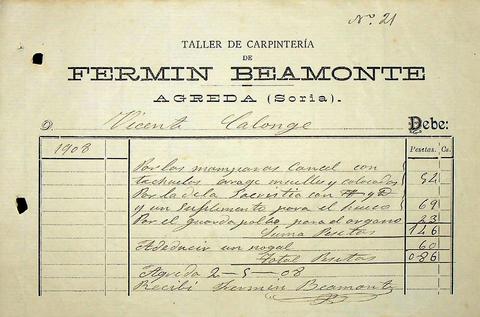 Nº 21
TALLER DE CARPINTERÍA
DE
FERMIN BEAMONTE
AGREDA (Soria).
D. Vicente Calonge Debe:
1908 Pesetas. Cs.
Por las mamparas Cancel con
tachuelas muelles y colocadas 54
Por la de la Sacristia con
y un suplemento para el hueco 69
Por el guarda polbo para el organo 23
Suma Pesetas 146
A deducir un nogal 60
Total Pesetas 086
Agreda 2-5-08
Recibí Fermin Beamonte